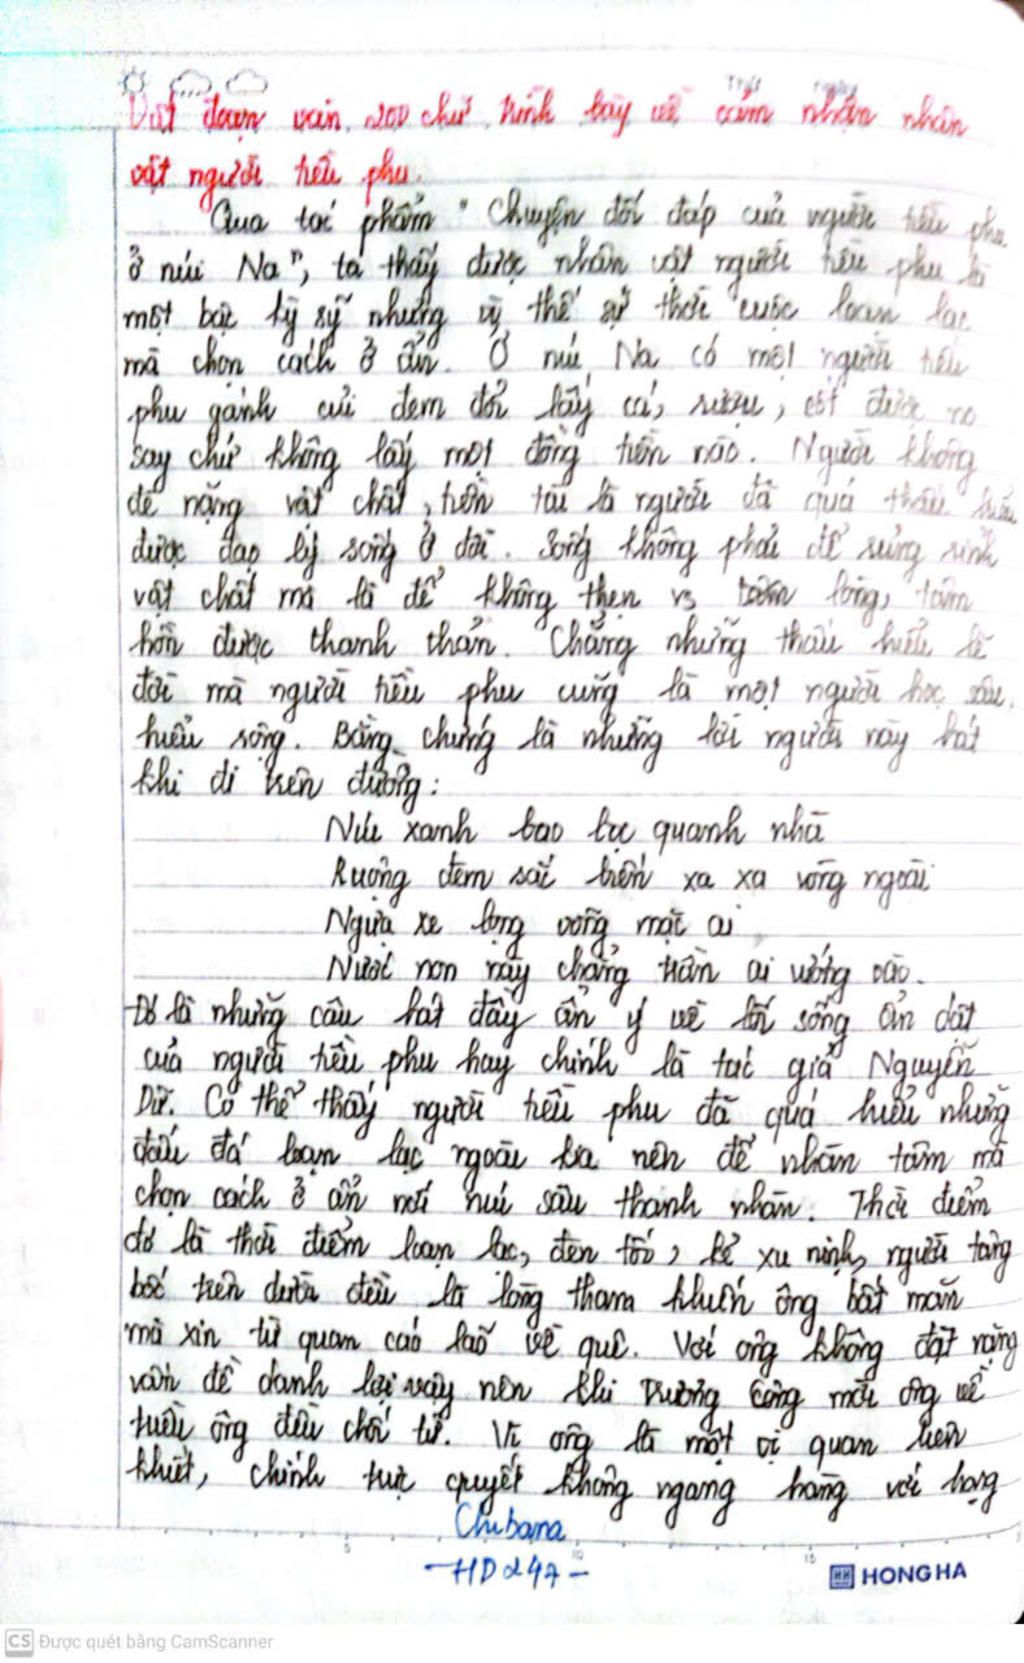 Viết đoạn văn 200 chữ trình bày về cảm nhận nhân
vật người tiều phu.
Qua tác phẩm "Chuyện đối đáp của người tiều phu
ở núi Na", ta thấy được nhân vật người tiều phu là
một bậc kỳ sỹ nhưng vì thế sự thời cuộc loạn lạc
mà chọn cách ở ẩn. Ở núi Na có một người tiều
phu gánh củi đem đổi lấy cá, rượu, cốt được no
say chứ không lấy một đồng tiền nào. Người không
để nặng vật chất, tiền tài là người đã quá thấu hiểu
được đạo lý sống ở đời. Sống không phải để sùng sính
vật chất mà là để không thẹn vs lòng, tâm
hồn được thanh thản. Chẳng những thấu hiểu lẽ
đời mà người tiều phu cũng là một người học sâu,
hiểu rộng. Bằng chứng là những lời người này hát
khi đi trên đường:
Núi xanh bao bọc quanh nhà
Ruộng đem sắc biến xa xa vòng ngoài
Ngựa xe lọng võng mặc ai
Nước non này chẳng trần ai vướng vào.
Đó là những câu hát đầy ẩn ý về lối sống ẩn dật
của người tiều phu hay chính là tác giả Nguyễn
Dữ. Có thể thấy người tiều phu đã quá hiểu những
đấu đá loạn lạc ngoài kia nên để nhàn tâm mà
chọn cách ở ẩn nơi núi sâu thanh nhàn. Thời điểm
đó là thời điểm loạn lạc, đen tối, kẻ xu nịnh, người tâng
bốc trên dưới đều là lòng tham khiến ông bất mãn
mà xin từ quan cáo lão về quê. Với ông không đặt nặng
vấn đề danh lợi vậy nên khi Trương Công mời ông về
triều ông đều chối từ. Vì ông là một vị quan liêm
khiết, chính trực quyết không ngang hàng với hạng
Chibana
-HD 247-
HONG HA
CS Được quét bằng CamScanner